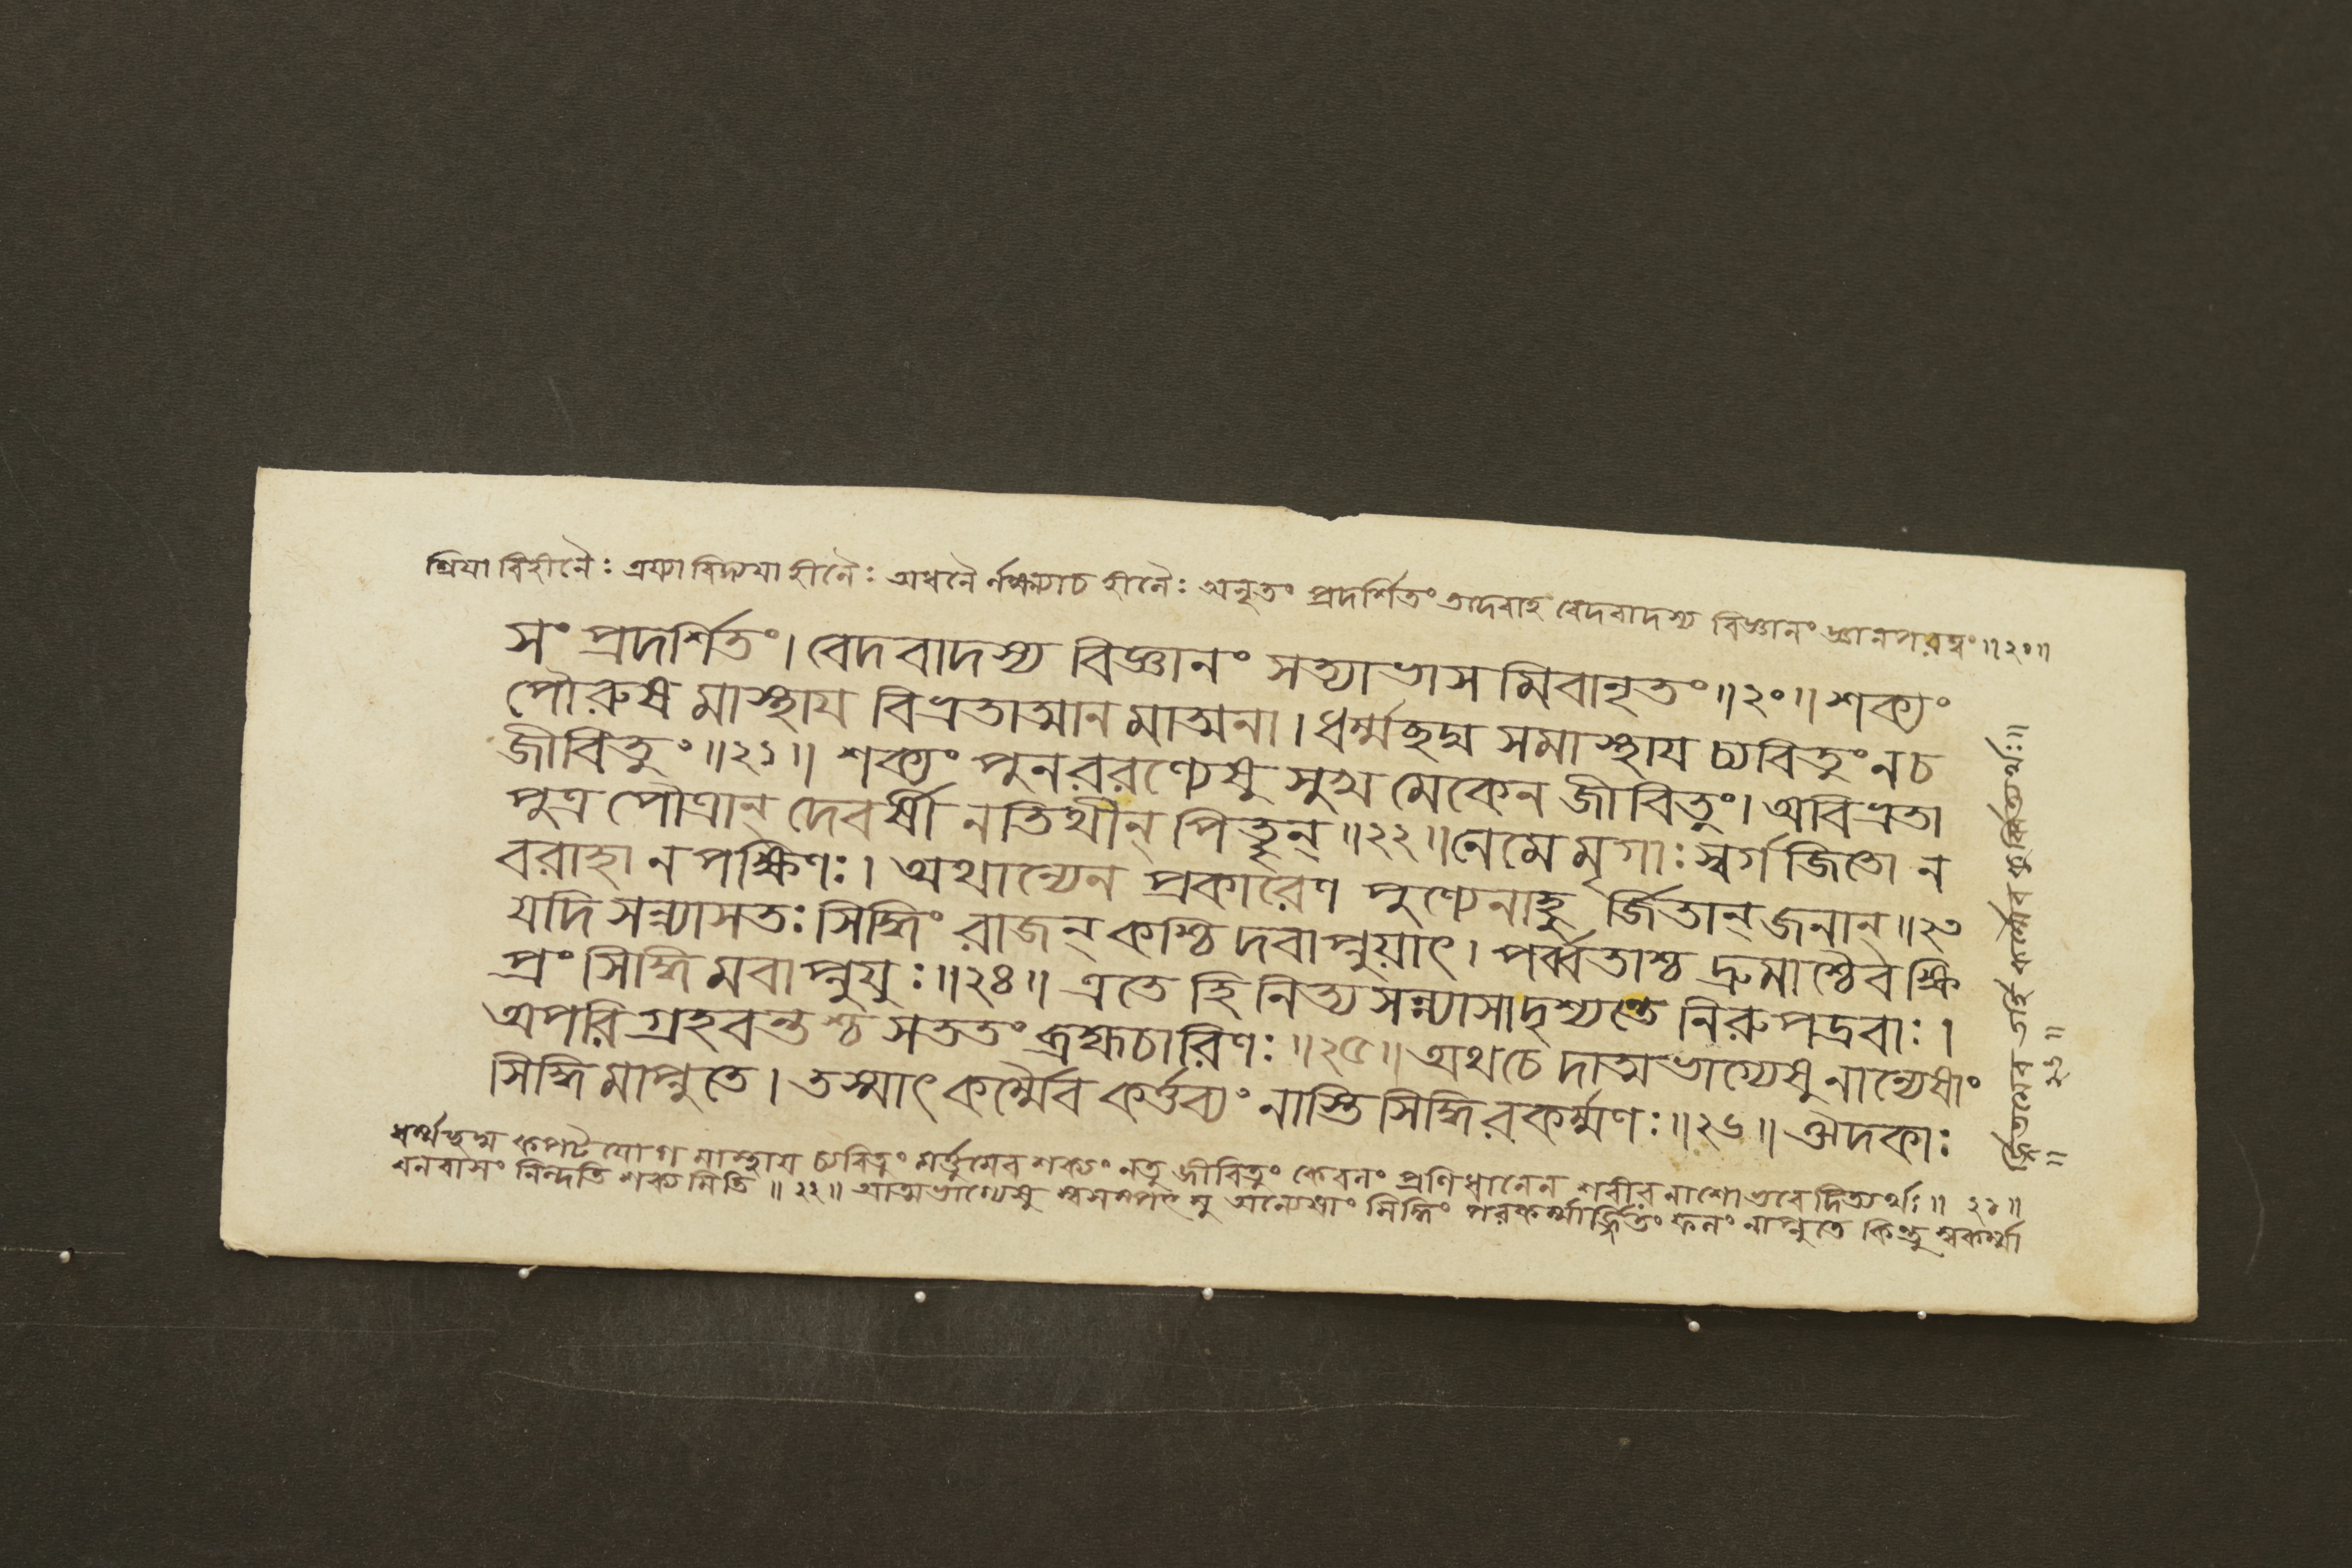 শ্রিয়া বিহীনৈঃ ত্রয্যা বিদ্যযা হীনৈঃ অধনৈ হীনৈঃ অনৃতং প্রদর্শিতং তদেবাহ বেদবাদস্য বিজ্ঞানং ॥২০॥
সং প্রদর্শিতং। বেদবাদস্য বিজ্ঞানং সত্যাভাসমিবানৃতং॥২০॥ শক্যং
পৌরুষমাস্থায বিভ্রতাত্মানমাত্মনা। ধর্ম্মছদ্ম সমাস্থায চ্যবিতুং নচ
জীবিতুং॥২১॥ শক্যং পুনররণ্যেষু সুখমেকেন জীবিতুং। অবিভ্রতা
পুত্রপৌত্রান্ দেবর্ষীনতিথীন্ পিতৄন্॥২২॥ নেমে মৃগাঃ স্বর্গজিতো ন
বরাহা ন পক্ষিণঃ। অথান্যেন প্রকারেণ পুণ্যেনাহু র্জিতান্ জনান্॥২৩
যদি সন্ন্যাসতঃ সিদ্ধিং রাজন্ কশ্চিদবাপ্নুয়াৎ। পর্ব্বতাশ্চ দ্রুমাশ্চৈব ক্ষি
প্রং সিদ্ধিমবাপ্নুযুঃ॥২৪॥ এতে হি নিত্যসন্ন্যাসা দৃশ্যন্তে নিরুপদ্রবাঃ।
অপরিগ্রহবন্তশ্চ সততং ব্রহ্মচারিণঃ॥২৫॥ অথ চেদাত্মভাগ্যেষু নান্যেষাং
সিদ্ধিমাপ্নুতে। তস্মাৎ কর্ম্মৈব কর্ত্তব্যং নাস্তি সিদ্ধিরকর্ম্মণঃ॥২৬॥ ঔদকাঃ
ধর্ম্মছদ্ম কপট যোগ মাস্থায চ্যবিতুং মর্ত্তুমেব শক্যং নতু জীবিতুং কেবলং প্রণিধানেন শরীরনাশো ভবেদিত্যর্থঃ॥ ২১॥
বনবাসং নিন্দতি শক্যমিতি॥২২॥ আত্মভাগ্যেষু অন্যেষাং সিদ্ধিং পরকর্ম্মার্জ্জিতং ফলং নাপ্নুতে কিন্তু স্বকর্ম্মা
র্জিতমেব তর্হি কর্ম্মৈব কুর্ব্বিত্যর্থঃ॥
॥ ২৬॥